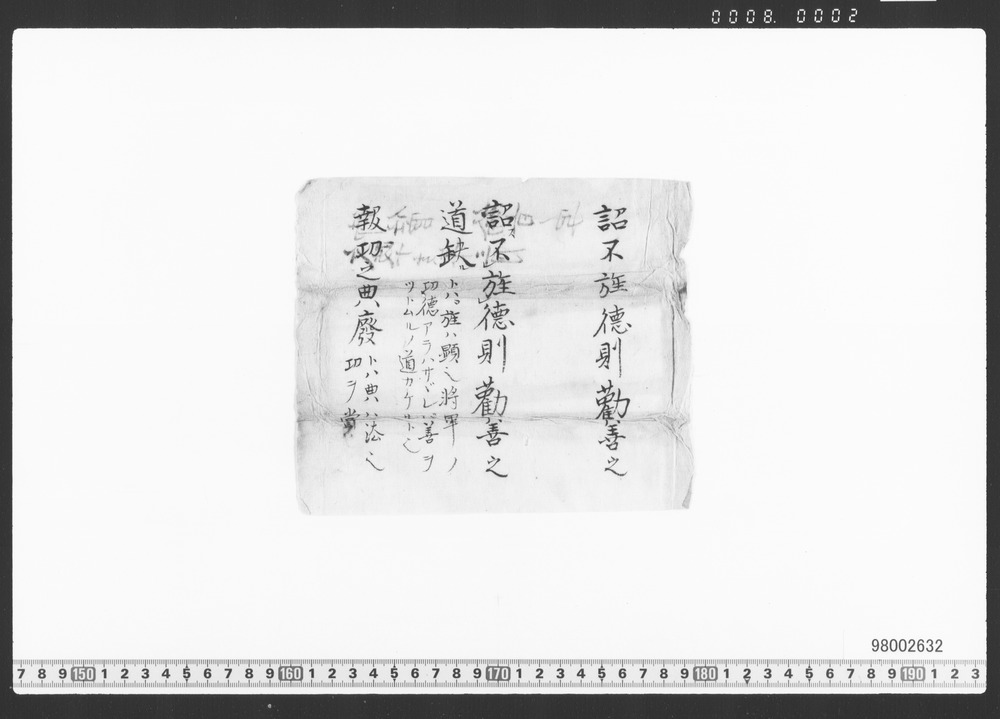 0008. 0002
詔不旌德則勸善之
詔不旌德則勸善之
道缺
トハ旌ハ顕也将軍ノ
功德アラハサヾレバ善ヲ
ツトムルノ道カケルト也
報功之典廢
トハ典ハ法也
功ヲ賞
98002632
7 8 9 150 1 2 3 4 5 6 7 8 9 160 1 2 3 4 5 6 7 8 9 170 1 2 3 4 5 6 7 8 9 180 1 2 3 4 5 6 7 8 9 190 1 2 3